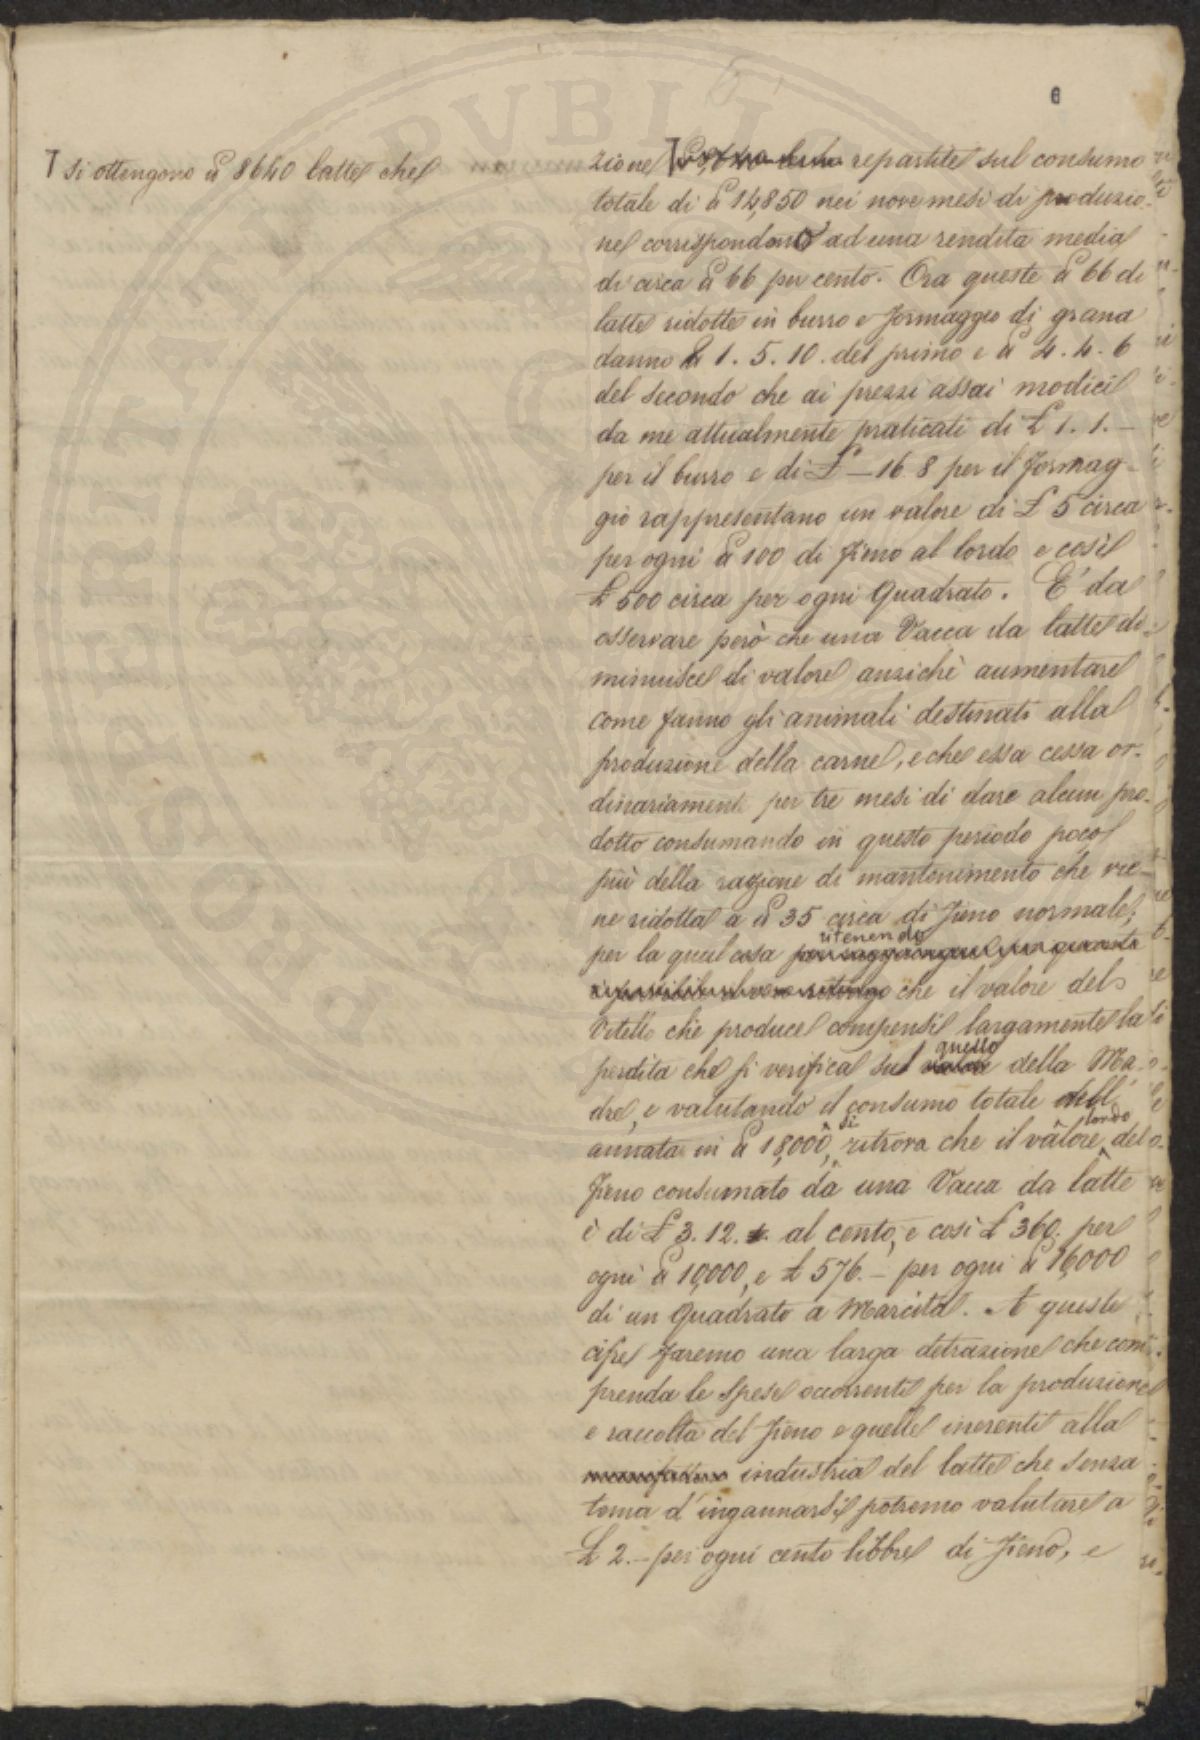 6
T si ottengono ℔ 8640 latte che
zione T ℔ 8,640 latte repartite sul consumo
totale di ℔ 14,850 nei nove mesi di produzio-
ne corrispondono ad una rendita media
di circa ℔ 66 per cento. Ora queste ℔ 66 di
latte ridotte in burro e formaggio di grana
danno ℔ 1. 5. 10. del primo e ℔ 4. 4. 6
del secondo che ai prezzi assai modici
da me attualmente praticati di £ 1. 1. —
per il burro e di £ — 16. 8 per il formag-
gio rappresentano un valore di £ 5 circa
per ogni ℔ 100 di fieno al lordo e così
£ 500 circa per ogni Quadrato. E' da
osservare però che una Vacca da latte di-
minuisce di valore anzichè aumentare
come fanno gli animali destinati alla
produzione della carne, e che essa cessa or-
dinariamente per tre mesi di dare alcun pro-
dotto consumando in questo periodo poco
più della razione di mantenimento che vie-
ne ridotta a ℔ 35 circa di fieno normale;
per la qual cosa ritenendo
che il valore del
Vitello che produce compensi largamente la
perdita che si verifica sul valore quello della Ma-
dre, e valutando il consumo totale dell'
annata in ℔ 18,000, si ritrova che il valore lordo del
fieno consumato da una Vacca da latte
è di £ 3. 12. al cento, e così £ 360. per
ogni ℔ 10,000, e £ 576. — per ogni ℔ 16,000
di un Quadrato a Marcita. A queste
cifre faremo una larga detrazione che com-
prenda le spese occorrenti per la produzione
e raccolta del fieno e quelle inerenti alla
manifattura industria del latte che senza
tema d'ingannarsi potremo valutare a
£ 2. — per ogni cento libbre di fieno, e